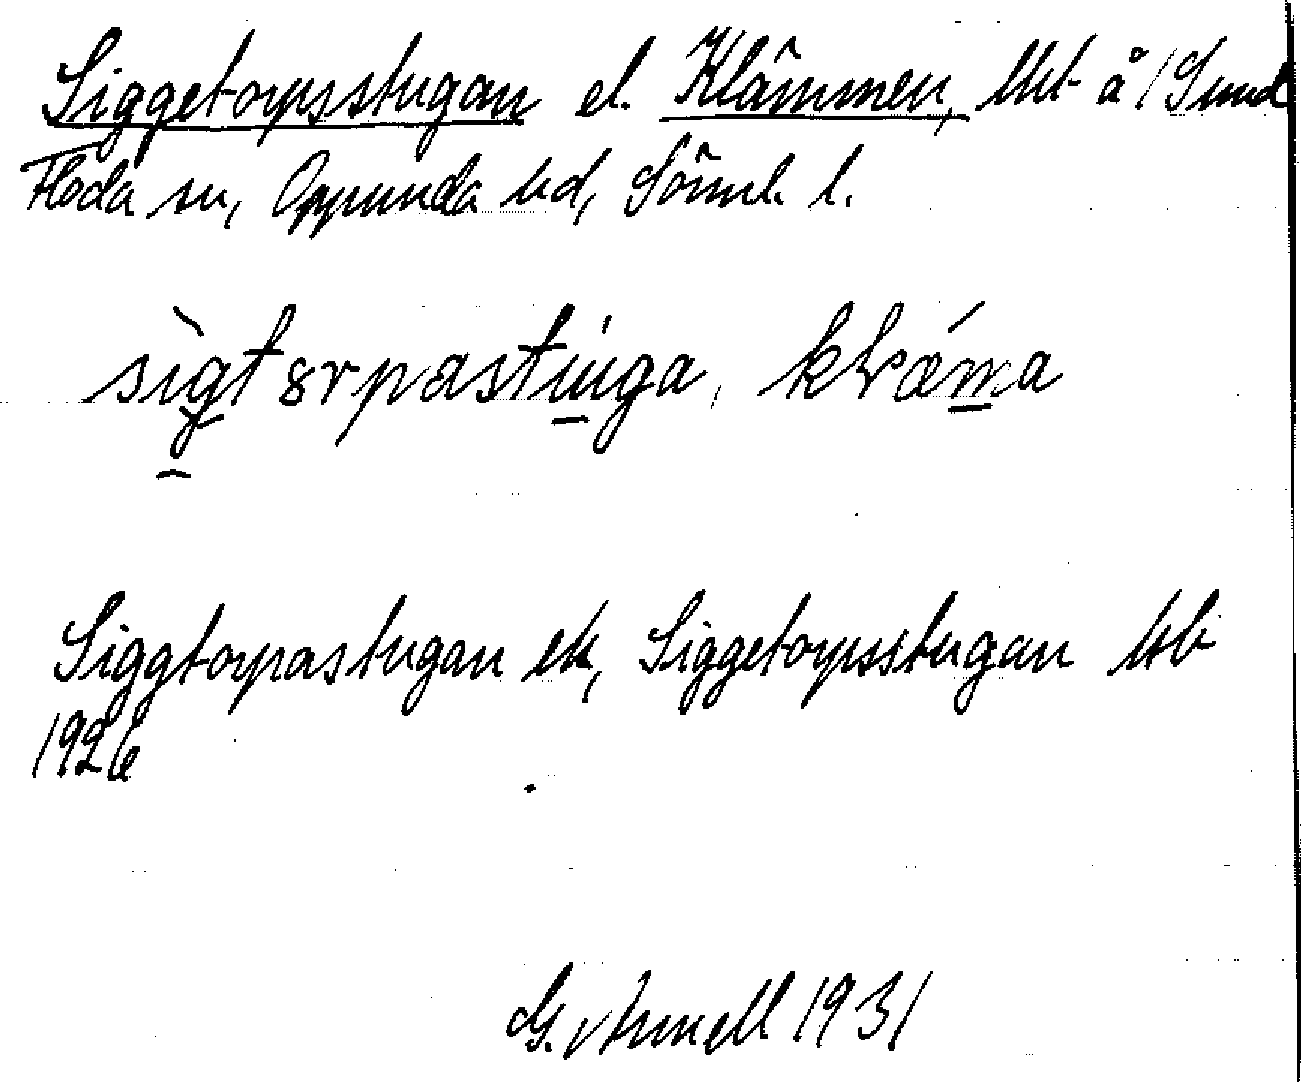 Siggetorpsstugan el. Klämmen, lht å /Sund
Floda sn, Oppunda hd, Söml. l.
sìgtɜrpastu̱ga, klǽm̱a
Siggtorpastugan ek, Siggetorpsstugan hb
1926
G. Annell 1931